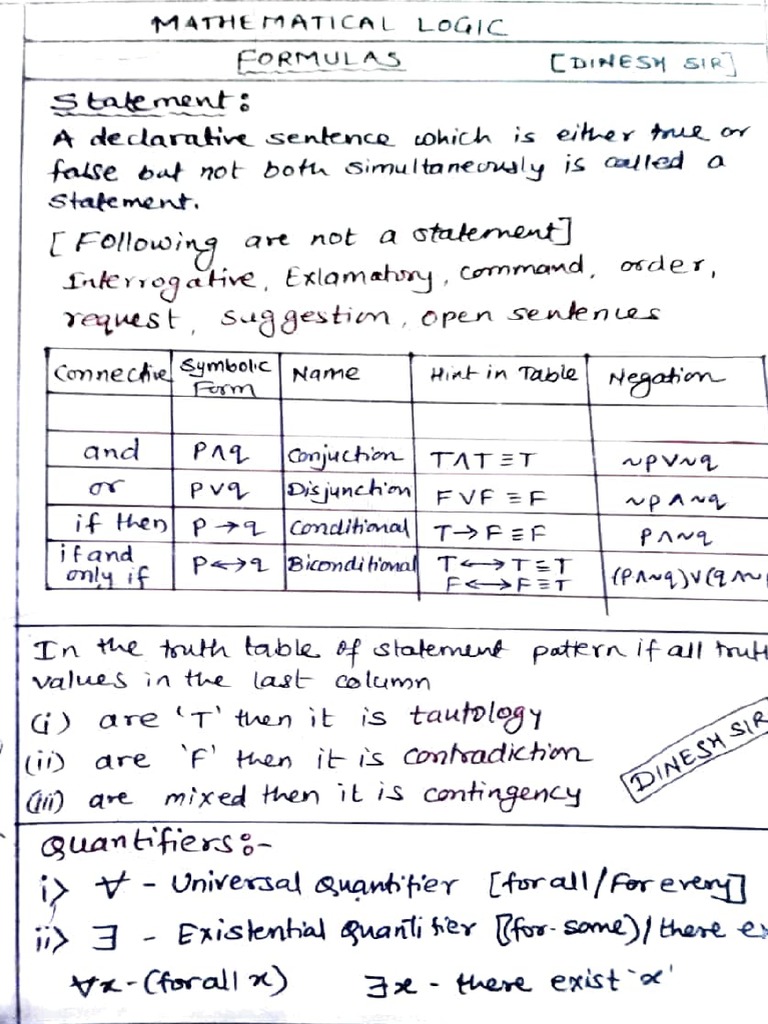 MATHEMATICAL LOGIC
FORMULAS [DINESH SIR]
Statement:
A declarative sentence which is either true or
false but not both simultaneously is called a
statement.
[Following are not a statement]
Interrogative, Exlamatory, command, order,
request, suggestion, open sentences
Connective Symbolic Form Name Hint in Table Negation
and p∧q Conjuction T∧T≡T ~p∨~q
or p∨q Disjunction F∨F≡F ~p∧~q
if then p→q Conditional T→F≡F p∧~q
if and only if p↔q Biconditional T↔T≡T F↔F≡T (p∧~q)∨(q∧~
In the truth table of statement pattern if all trut
values in the last column
(i) are 'T' then it is tautology
(ii) are 'F' then it is contradiction
(iii) are mixed then it is contingency
DINESH SIR
Quantifiers:-
i> ∀ - Universal Quantifier [for all/For every]
ii> ∃ - Existential Quantifier [(for some)/there ex
∀x - (for all x) ∃x - there exist 'x'